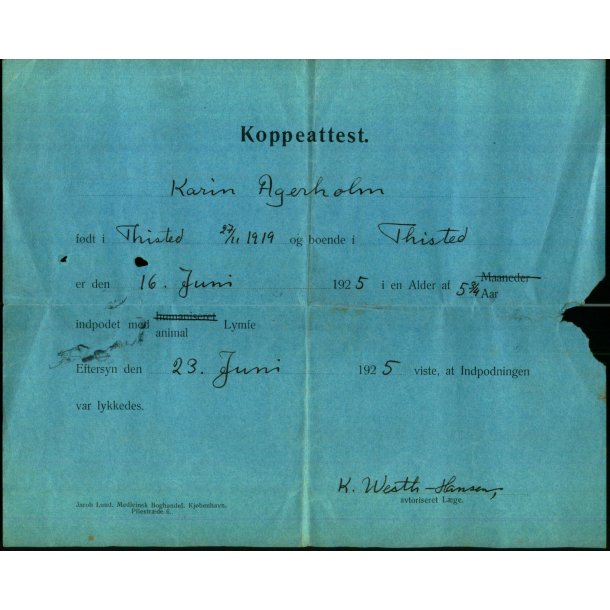 Koppeattest.
Karin Agerholm
født i Thisted 27/11 1919 og boende i Thisted
er den 16. Juni 1925 i en Alder af 5 3/4 Maaneder
Aar
indpodet med humaniseret Lymfe
animal
Eftersyn den 23. Juni 1925 viste, at Indpodningen
var lykkedes.
K. Westh-Hansen,
avtoriseret Læge.
Jacob Lund. Medicinsk Boghandel. Kjøbenhavn.
Pilestræde 6.